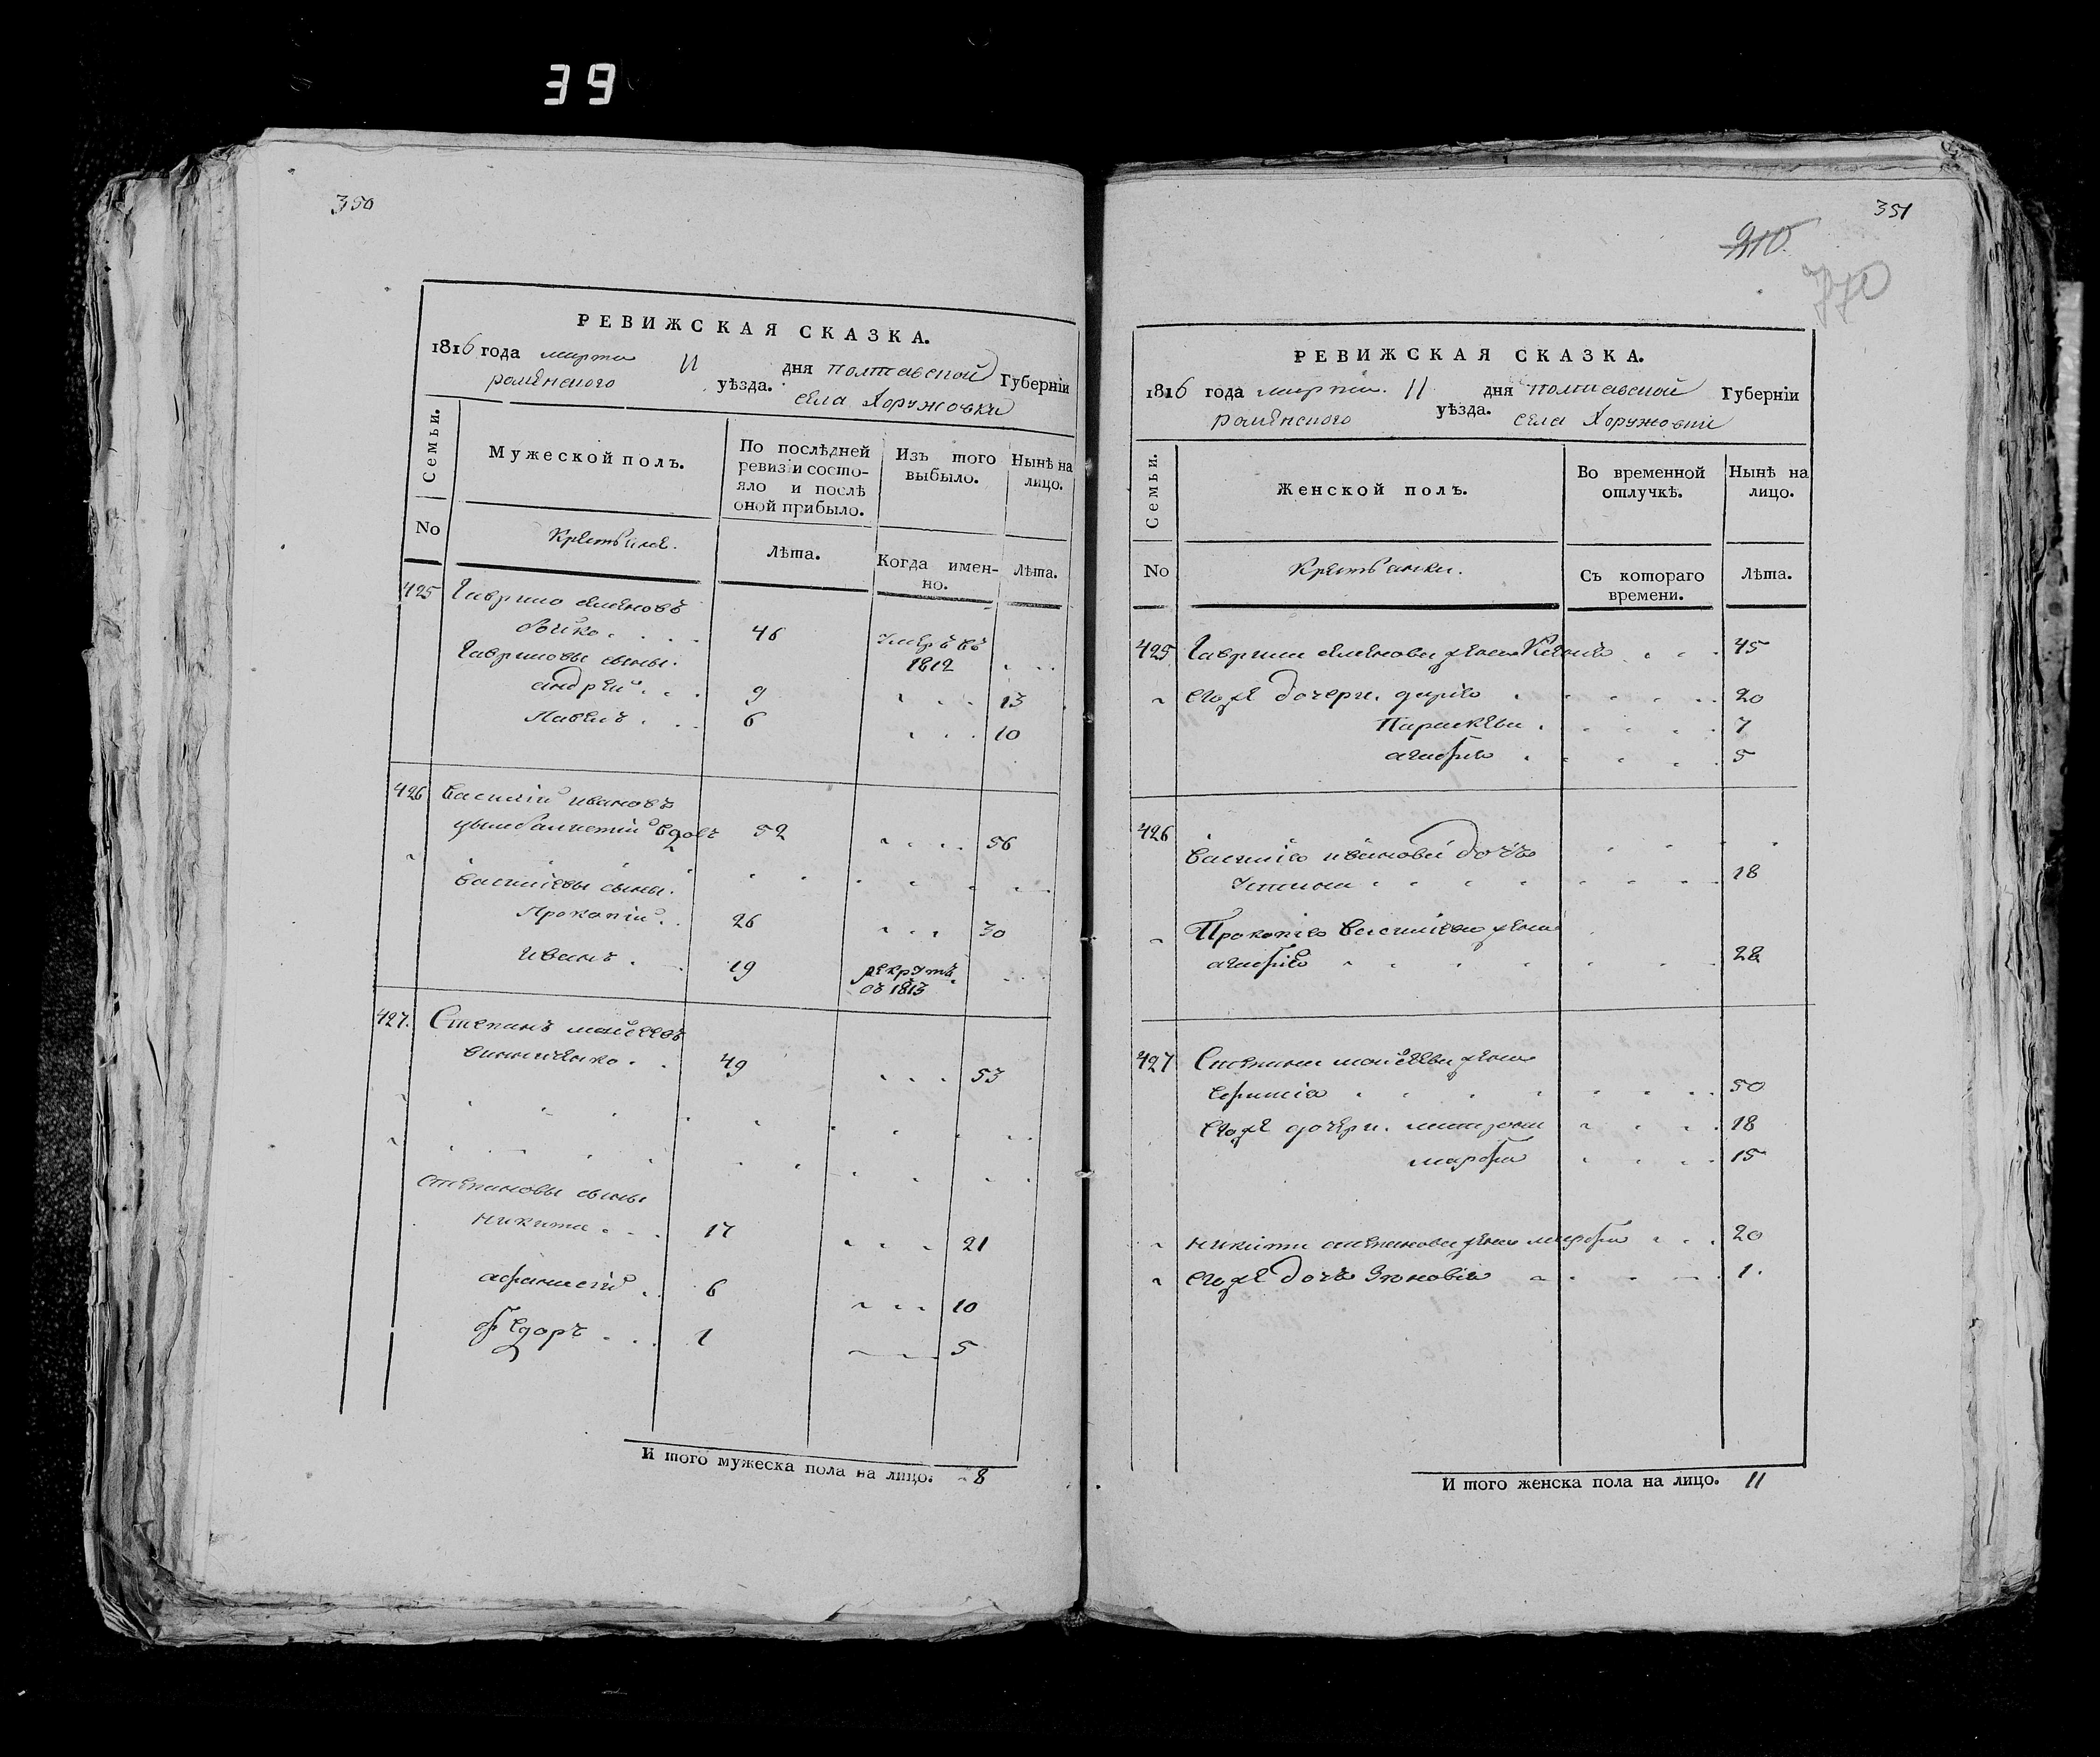 39
350
РЕВИЖСКАЯ СКАЗКА.
1816 года марта 11 дня полтавской Губерніи
роменского уѣзда. села Хоружовки
Семьи.
Мужеской полъ.
По послѣдней
ревизіи состо-
яло и послѣ
оной прибыло.
Изъ того
выбыло.
Нынѣ на
лицо.
No
Крестьяне.
Лѣта.
Когда имен-
но.
Лѣта.
425 Гаврило семеновъ
46 умеръ въ
1812
Гавриловы сыны.
андрей 9 13
Павелъ 6 10
426 василій ивановъ
52 56
василіевы сыны.
Прокопій 26 30
иванъ 19 рекрутъ
въ 1813
427. Степанъ моисеевъ
винниченко 49 53
степановы сыны
никита 17 21
афанасій 6 10
федоръ 1 5
И того мужеска пола на лицо. 8
351
210
РЕВИЖСКАЯ СКАЗКА.
1816 года марта 11 дня полтавской Губерніи
роменского уѣзда. села Хоружовки
Семьи.
Женской полъ.
Во временной
отлучкѣ.
Нынѣ на
лицо.
No
Крестьянки.
Съ котораго
времени.
Лѣта.
425 Гаврила семенова жена 45
егоже дочери. дарія 20
Параскева 7
агафія 5
426
василія иванова дочь
устина 18
Прокопія василіева жена
агафія 28
427 Степана моисеева жена
50
егоже дочери. матрона 18
марфа 15
никиты степанова жена марфа 20
егоже дочь зіновія 1.
И того женска пола на лицо. 11